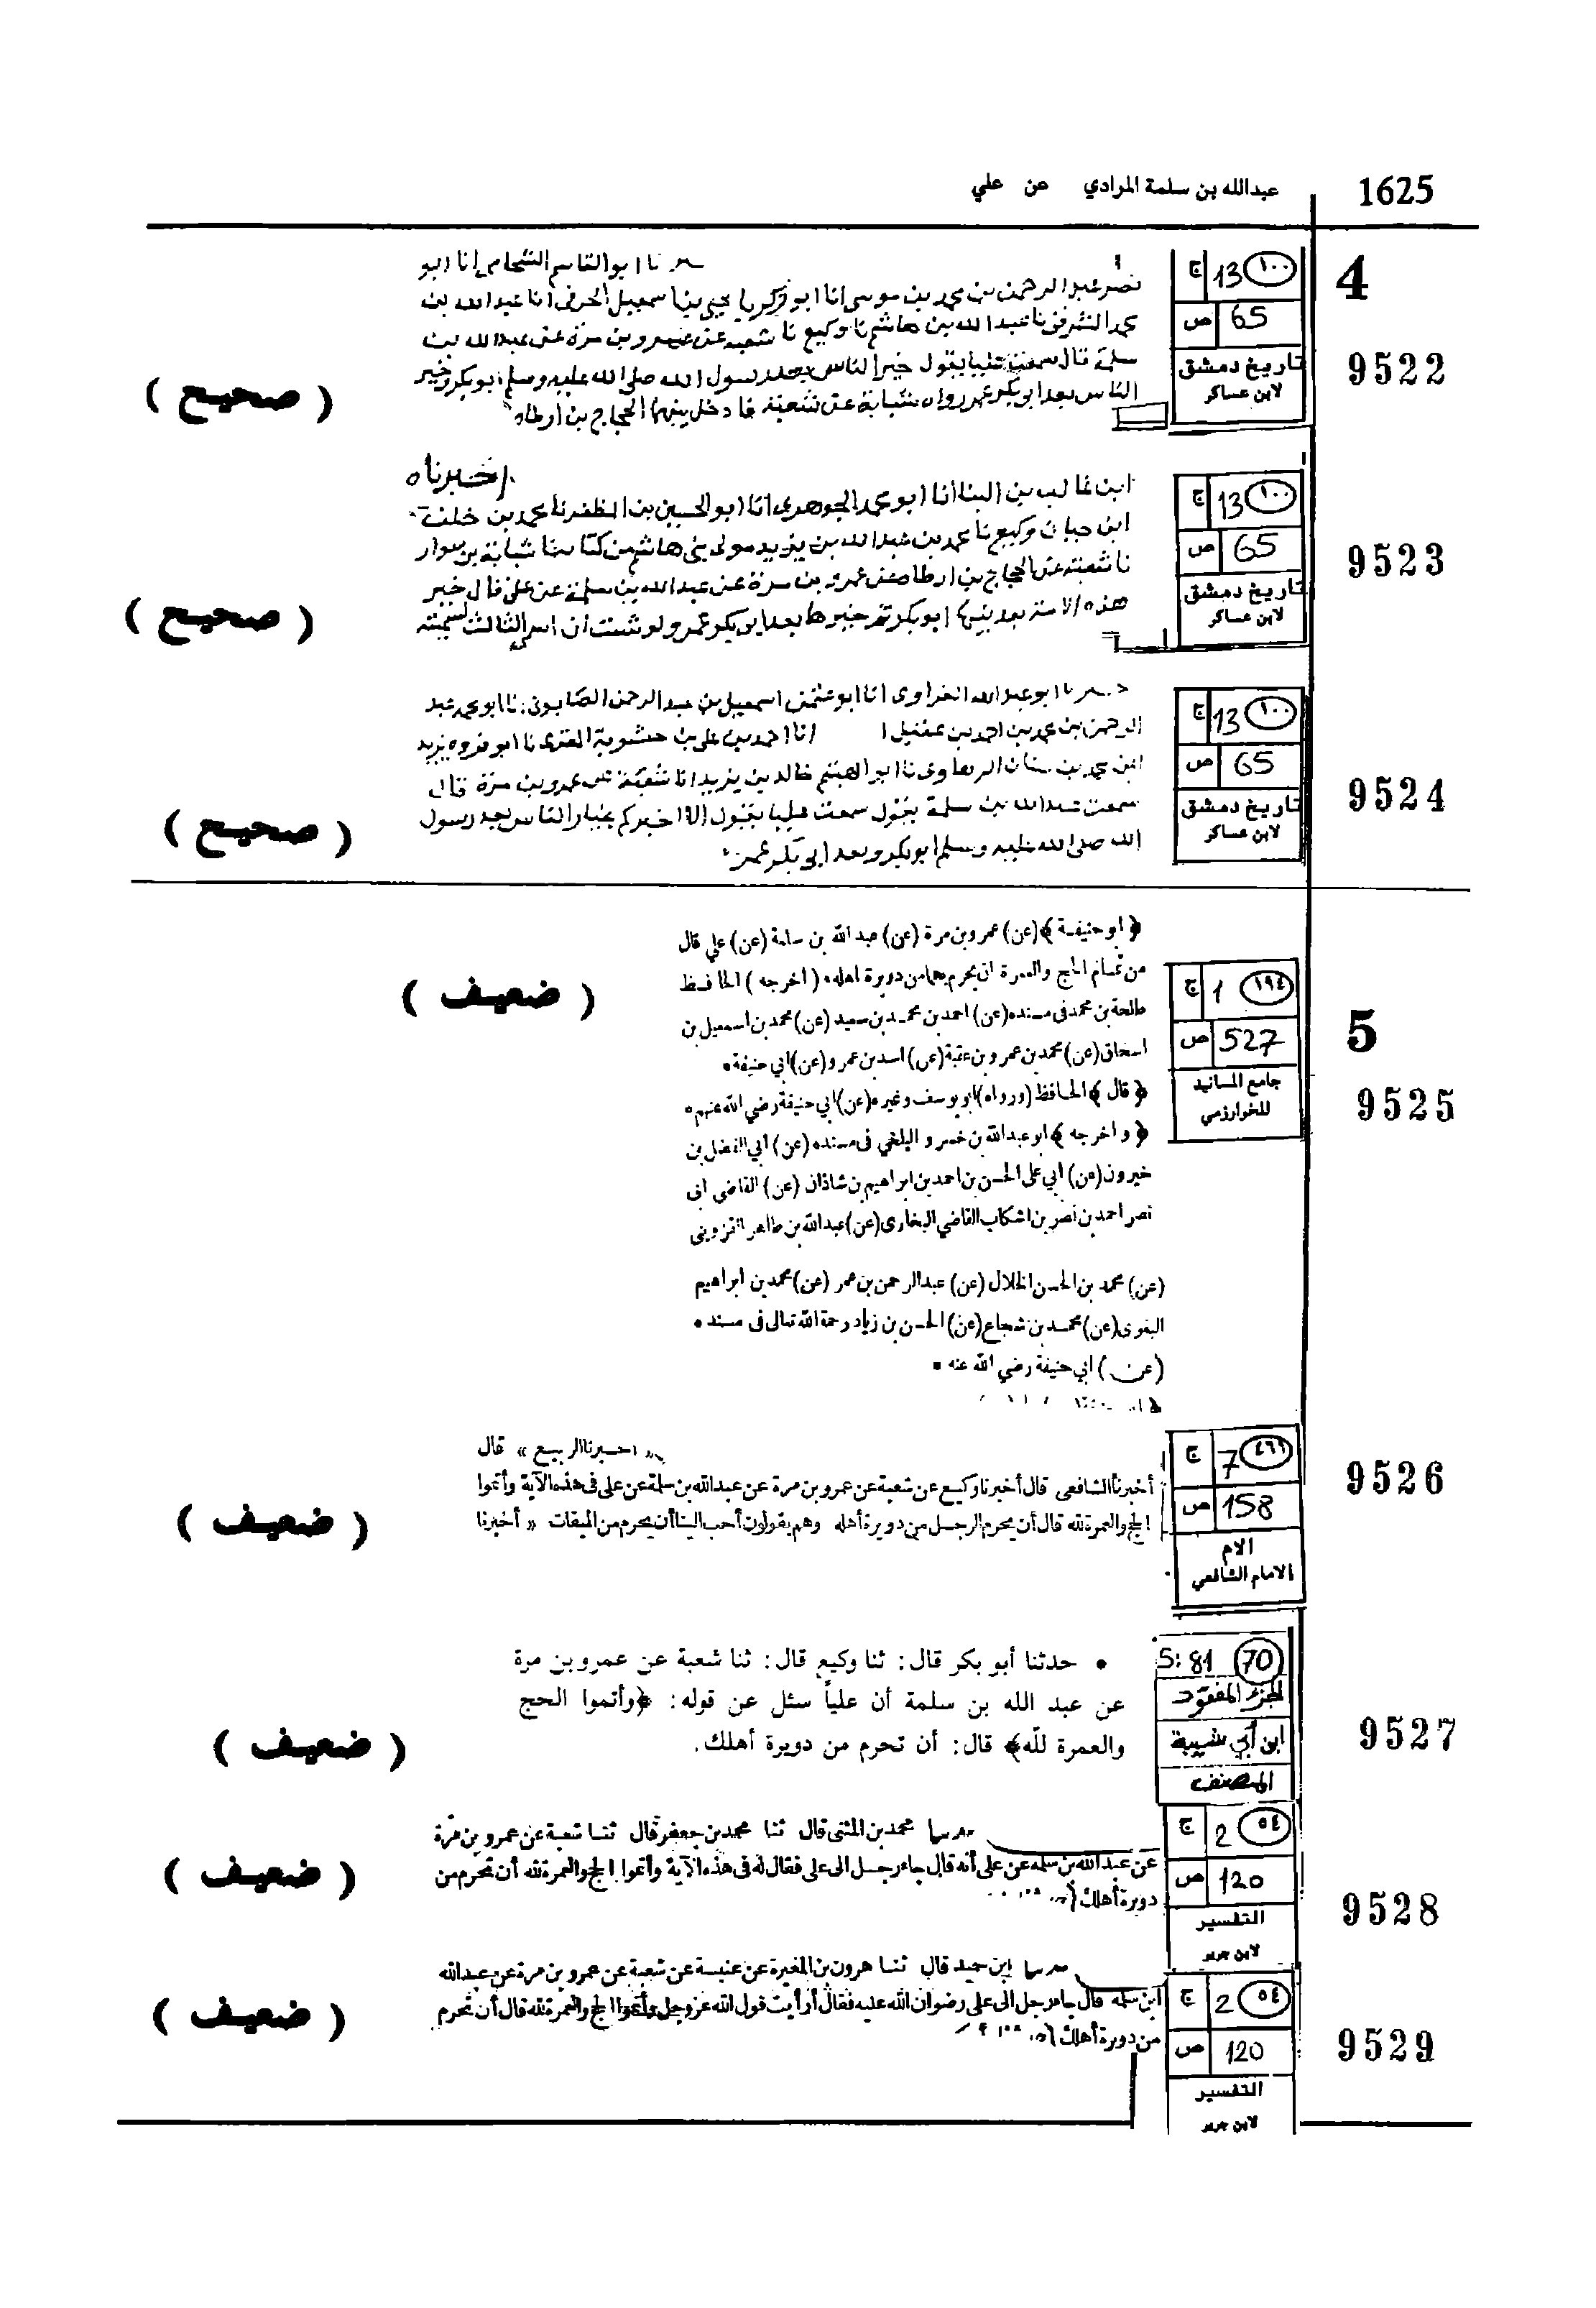 1625
عبدالله بن سلمة المرادي عن علي
4
ج 13 ١٠٠
ص 65
تاريخ دمشق
لابن عساكر
9522
نا ابو القاسم الشحامي انا ابو
نصر عبد الرحمن بن محمد بن موسى انا ابو زكريا يحيى بن اسمعيل الحربي انا عبد الله بن
محمد الشرقي نا عبد الله بن هاشم نا وكيع نا شعبة عن عمرو بن مرة عن عبد الله بن
سلمة قال سمعت عليا يقول خير الناس بعد رسول الله صلى الله عليه وسلم ابو بكر وخير
الناس بعد ابو بكر عمر رواه شبابة عن شعبة فادخل بينهما الحجاج بن ارطاه
( صحيح )
ج 13 ١٠٠
ص 65
تاريخ دمشق
لابن عساكر
9523
اخبرناه
ابن غالب بن البنا انا ابو محمد الجوهري انا ابو الحسين بن المظفر نا محمد بن خلف
ابن حيان وكيع نا محمد بن عبد الله بن يزيد مولى بني هاشم من كتابه نا شبابة بن سوار
نا شعبة عن الحجاج بن ارطاه عن عمرو بن مرة عن عبد الله بن سلمة عن علي قال خير
هذه الامة بعد نبيها ابو بكر ثم خيرها بعد ابي بكر عمر ولو شئت ان اسمي الثالث لسميته
( صحيح )
ج 13 ١٠٠
ص 65
تاريخ دمشق
لابن عساكر
9524
نا ابو عبد الله الفراوى انا ابو عثمن اسمعيل بن عبد الرحمن الصابوني نا ابو محمد عبد
الرحمن بن محمد بن احمد بن عقيل انا احمد بن علي بن حسنوية المقرى نا ابو فروه يزيد
ابن محمد بن سنان الرهاوى نا ابو الهيثم خالد بن يزيد انا شعبة عن عمرو بن مرة قال
سمعت عبد الله بن سلمة يقول سمعت عليا يقول الا اخبركم بخيار الناس بعد رسول
الله صلى الله عليه وسلم ابو بكر وبعد ابي بكر عمر
( صحيح )
5
ج 1 ١٩٤
ص 527
جامع المسانيد
للخوارزمي
9525
﴿ ابو حنيفة ﴾ (عن) عمرو بن مرة (عن) عبد الله بن سلمة (عن) علي قال
من تمام الحج والعمرة ان يحرم بهما من دويرة اهله • ( اخرجه ) الحافظ
طلحة بن محمد فى مسنده (عن) احمد بن محمد بن سعيد (عن) محمد بن اسمعيل بن
اسحاق (عن) محمد بن عمرو بن عقبة (عن) اسد بن عمرو (عن) ابي حنيفة •
﴿ قال ﴾ الحافظ (ورواه) ابو يوسف وغيره (عن) ابي حنيفة رضي الله عنهم •
﴿ واخرجه ﴾ ابو عبد الله بن خسرو البلخي فى مسنده (عن) أبي الفضل بن
خيرون (عن) ابي علي الحسن بن احمد بن ابراهيم بن شاذان (عن) القاضي ابى
نصر احمد بن نصر بن اشكاب القاضي البخارى (عن) عبد الله بن طاهر القزوينى
(عن) محمد بن الحسن الخلال (عن) عبد الرحمن بن عمر (عن) محمد بن ابراهيم
البغوى (عن) محمد بن شجاع (عن) الحسن بن زياد رحمة الله تعالى فى مسنده •
(عن) ابي حنيفة رضي الله عنه •
( ضعيف )
ج 7 ٤٦٦
ص 158
الام
الامام الشافعي
9526
« اخبرنا الربيع » قال
أخبرنا الشافعى قال أخبرنا وكيع عن شعبة عن عمرو بن مرة عن عبد الله بن سلمة عن على فى هذه الآية وأتموا
الحج والعمرة لله قال أن يحرم الرجل من دويرة أهله وهم يقولون أحب الينا أن يحرم من الميقات « أخبرنا
( ضعيف )
S: 81 70
الجزء المفقود
ابن أبي شيبة
المصنف
9527
• حدثنا أبو بكر قال: ثنا وكيع قال: ثنا شعبة عن عمرو بن مرة
عن عبد الله بن سلمة أن علياً سئل عن قوله: ﴿وأتموا الحج
والعمرة للّه﴾ قال: أن تحرم من دويرة أهلك.
( ضعيف )
ج 2 ٥٤
ص 120
التفسير
لابن جرير
9528
محمد بن المثنى قال ثنا محمد بن جعفر قال ثنا شعبة عن عمرو بن مرّة
عن عبد الله بن سلمه عن على أنه قال جاء رجل الى على فقال له فى هذه الآية وأتموا الحج والعمرة لله أن تحرم من
دويرة أهلك
( ضعيف )
ج 2 ٥٤
ص 120
التفسير
لابن جرير
9529
ابن حميد قال ثنا هرون بن المغيرة عن عنبسة عن شعبة عن عمرو بن مرة عن عبد الله
ابن سلمه قال جاء رجل الى على رضوان الله عليه فقال أرأيت قول الله عز وجل وأتموا الحج والعمرة لله قال أن تحرم
من دويرة أهلك
( ضعيف )